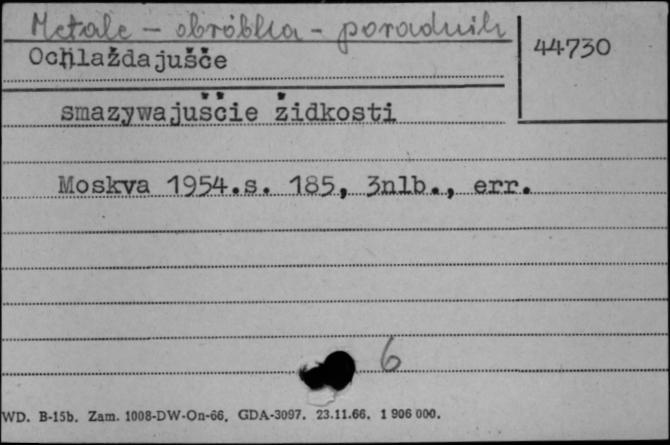 Metale - obróbka - poradnik
44730
Ochlaždajušče
smazywajuščie židkosti
Moskva 1954.s. 185, 3nlb., err.
6
WD. B-15b. Zam. 1008-DW-On-66. GDA-3097. 23.11.66. 1 906 000.